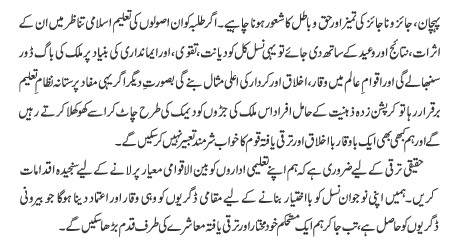 پہچان، جائز و ناجائز کی تمیز اور حق و باطل کا شعور ہونا چاہیے۔ اگر طلبہ کو ان اصولوں کی تعلیم اسلامی تناظر میں ان کے
اثرات، نتائج اور وعید کے ساتھ دی جائے تو یہی نسل کل کو دیانت، تقویٰ، اور ایمانداری کی بنیاد پر ملک کی باگ ڈور
سنبھالے گی اور اقوام عالم میں وقار، اخلاق اور کردار کی اعلیٰ مثال بنے گی بصورتِ دیگر اگر یہی مفاد پرستانہ نظام تعلیم
برقرار رہا تو کرپشن زدہ ذہنیت کے حامل افراد اس ملک کی جڑوں کو دیمک کی طرح چاٹ کر اسے کھوکھلا کرتے رہیں
گے اور ہم کبھی بھی ایک باوقار باخلاق اور ترقی یافتہ قوم کا خواب شرمندہ تعبیر نہیں کر سکیں گے۔
حقیقی ترقی کے لیے ضروری ہے کہ ہم اپنے تعلیمی اداروں کو بین الاقوامی معیار پر لانے کے لیے سنجیدہ اقدامات
کریں۔ ہمیں اپنی نوجوان نسل کو بااختیار بنانے کے لیے مقامی ڈگریوں کو وہی وقار اور اعتماد دینا ہوگا جو بیرونی
ڈگریوں کو حاصل ہے، تب جا کر ہم ایک مستحکم خودمختار اور ترقی یافتہ معاشرے کی طرف قدم بڑھا سکیں گے۔